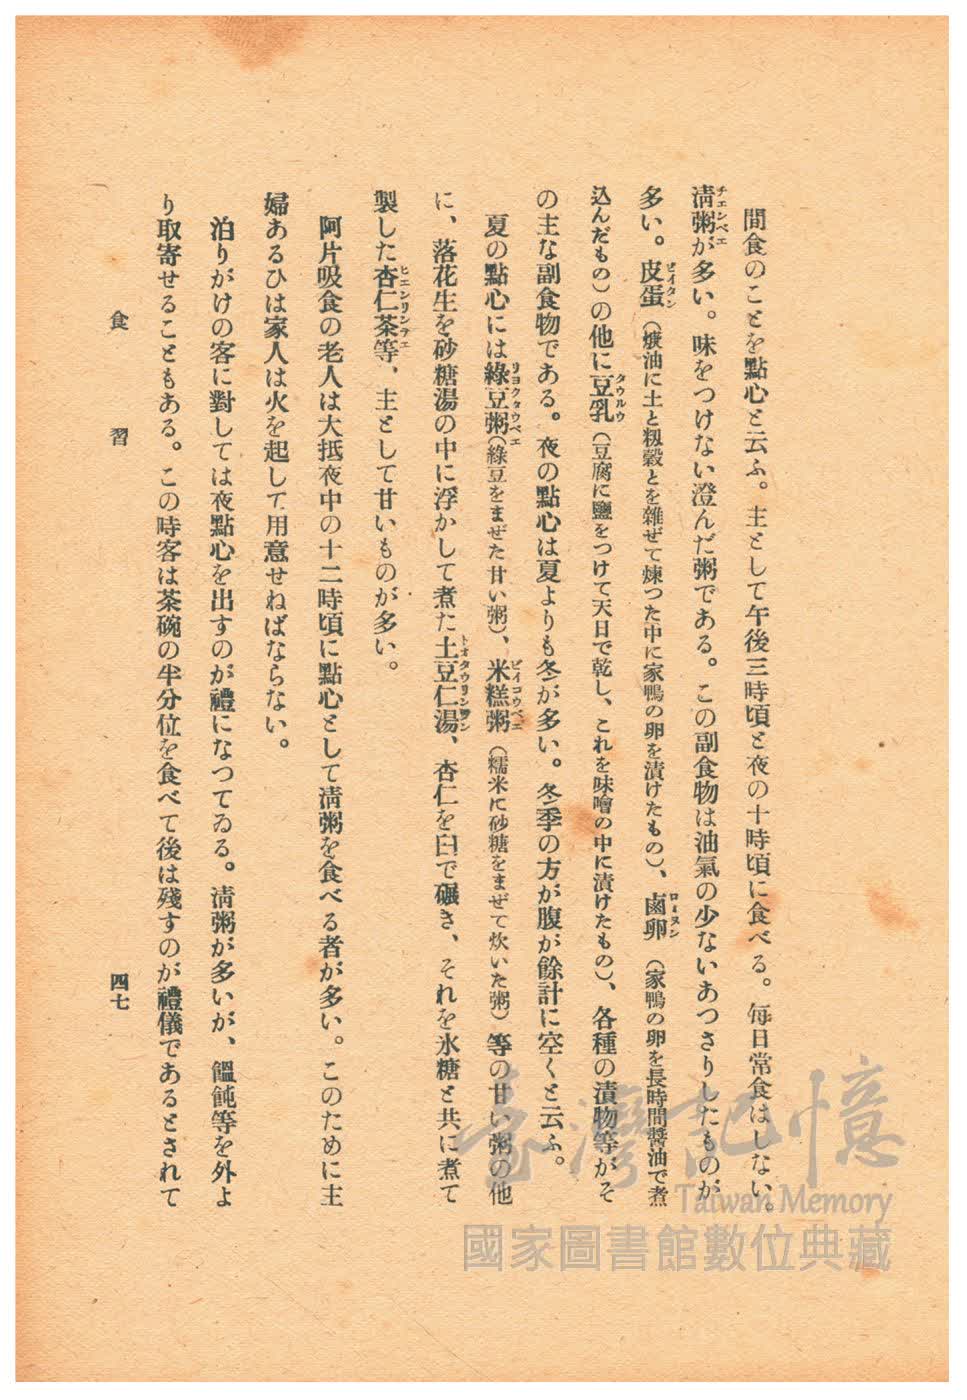 間食のことを點心と云ふ。主として午後三時頃と夜の十時頃に食べる。每日常食はしない。
淸粥が多い。味をつけない澄んだ粥である。この副食物は油氣の少ないあつさりしたものが
チエンベエ
多い。皮蛋（燰油に土と籾穀とを雜ぜて煉つた中に家鴨の卵を漬けたもの）、鹵卵（家鴨の卵を長時間醬油で煮
ピイタン
ロオヌン
込んだもの）の他に豆乳（豆腐に鹽をつけて天日で乾し、これを味噌の中に漬けたもの）、各種の漬物等がそ
タウルウ
の主な副食物である。夜の點心は夏よりも冬が多い。冬季の方が腹が餘計に空くと云ふ。
夏の點心には綠豆粥（綠豆をまぜた甘い粥）、米糕粥（糯米に砂糖をまぜて炊いた粥）等の甘い粥の他
リヨクタウベエ
ビイコウベエ
に、落花生を砂糖湯の中に浮かして煮た土豆仁湯、杏仁を臼で碾き、それを氷糖と共に煮て
トオタウリンタン
製した杏仁茶等、主として甘いものが多い。
ヒエンリンテエ
阿片吸食の老人は大抵夜中の十二時頃に點心として淸粥を食べる者が多い。このために主
婦あるひは家人は火を起して用意せねばならない。
泊りがけの客に對しては夜點心を出すのが禮になつてゐる。淸粥が多いが、饂飩等を外よ
り取寄せることもある。この時客は茶碗の半分位を食べて後は殘すのが禮儀であるとされて
食習
四七
臺灣記憶
Taiwan Memory
國家圖書館數位典藏